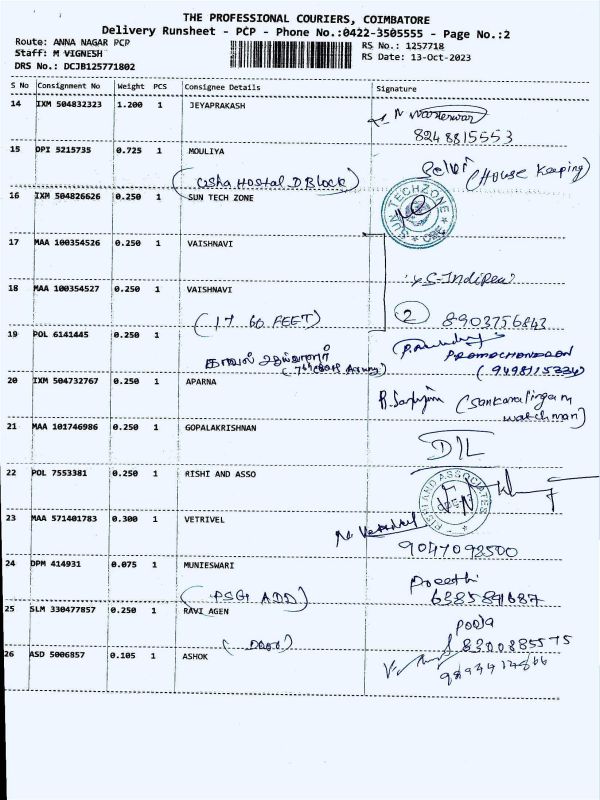 THE PROFESSIONAL COURIERS, COIMBATORE
Delivery Runsheet - PCP - Phone No.:0422-3505555 - Page No.:2
Route: ANNA NAGAR PCP RS No.: 1257718
Staff: M VIGNESH RS Date: 13-Oct-2023
DRS No.: DCJB125771802
S No Consignment No Weight PCS Consignee Details Signature
14 IXM 504832323 1.200 1 JEYAPRAKASH
8248815553
15 DPI 5215735 0.725 1 MOULIYA
Selvi (House Keeping)
(Usha Hostal D Block)
16 IXM 504826626 0.250 1 SUN TECH ZONE
SUN TECHZONE CBE
17 MAA 100354526 0.250 1 VAISHNAVI
18 MAA 100354527 0.250 1 VAISHNAVI
(17 60 FEET) 2 8903756843
19 POL 6141445 0.250 1
காவல்
20 IXM 504732767 0.250 1 APARNA
(Sankaralingam
watchman)
21 MAA 101746986 0.250 1 GOPALAKRISHNAN
D/L
22 POL 7553381 0.250 1 RISHI AND ASSO
RISHI AND ASSOCIATES
23 MAA 571401783 0.300 1 VETRIVEL
Vetrivel
9047098500
24 DPM 414931 0.075 1 MUNIESWARI
Preethi
(PSG ADD) 6385891687
25 SLM 330477857 0.250 1 RAVI AGEN
Pooja
(Door) 8300885575
26 ASD 5006857 0.105 1 ASHOK